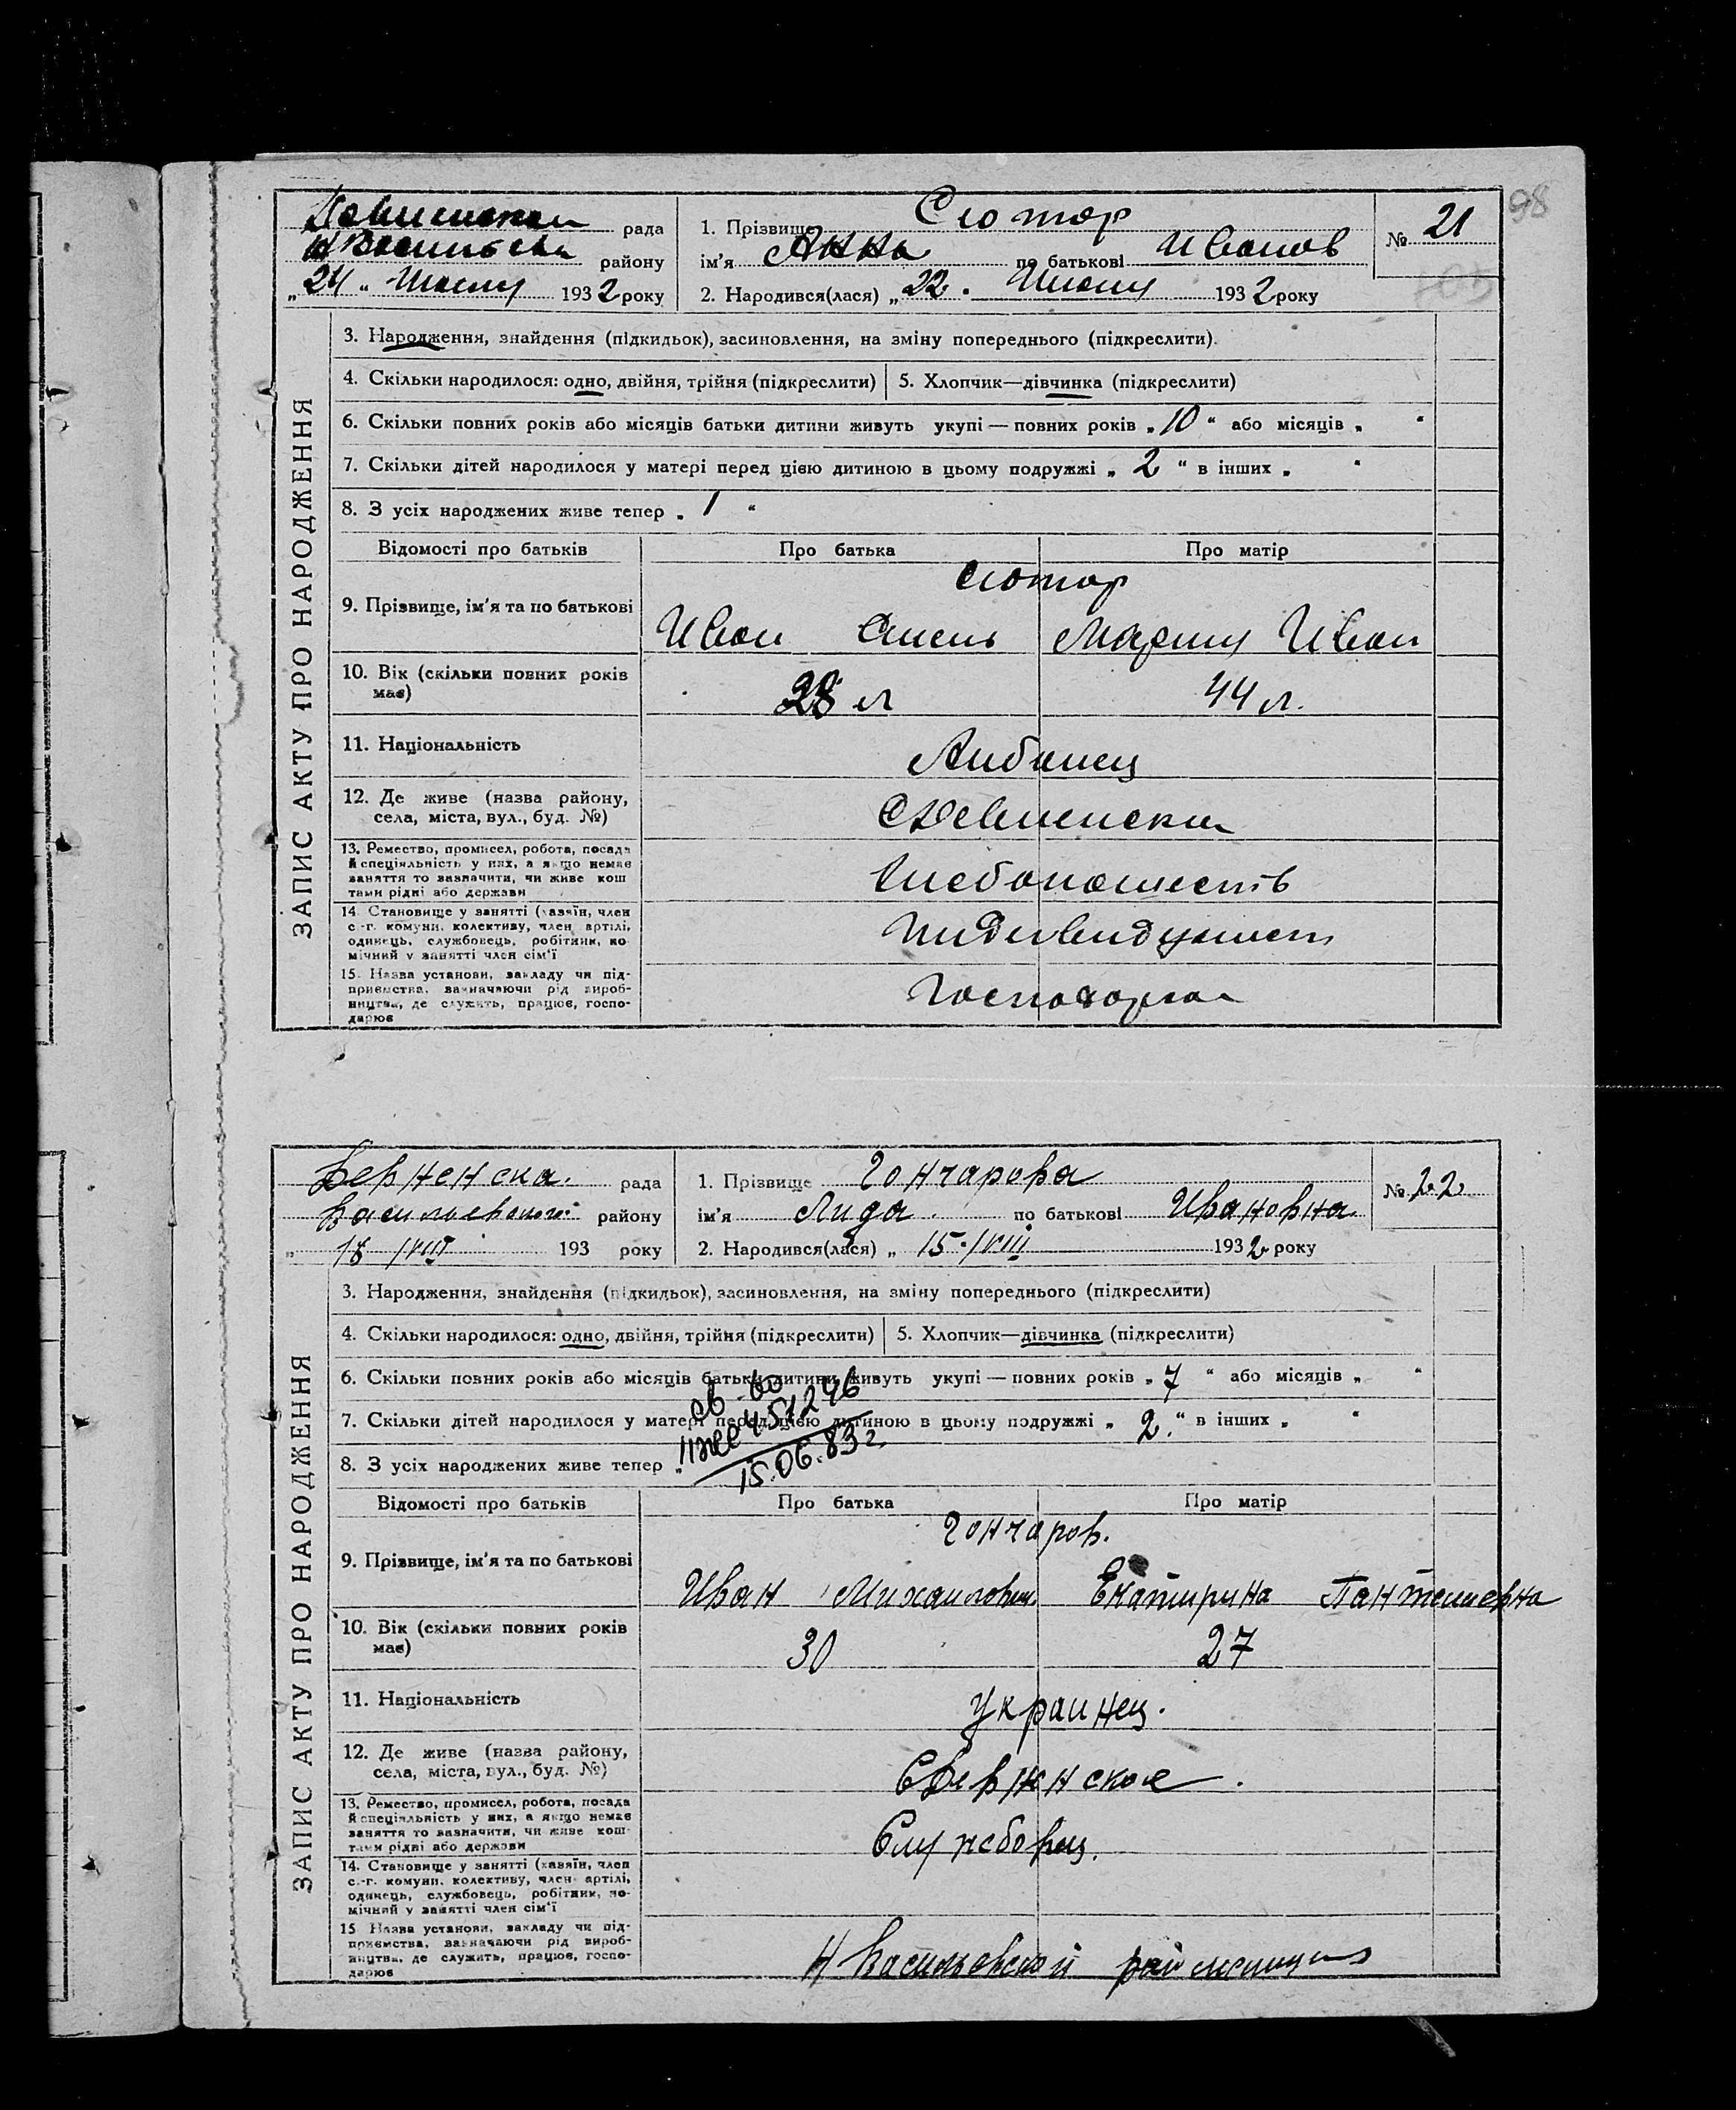 98
рада 1. Прізвище Сютор № 21
Н Васильевк району ім'я Анна по батькові Иванов
„24" 1932 року 2. Народився(лася) „22. 1932 року
ЗАПИС АКТУ ПРО НАРОДЖЕННЯ
3. Народження, знайдення (підкидьок), засиновлення, на зміну попереднього (підкреслити).
4. Скільки народилося: одно, двійня, трійня (підкреслити) 5. Хлопчик—дівчинка (підкреслити)
6. Скільки повних років або місяців батьки дитини живуть укупі — повних років „10" або місяців „ "
7. Скільки дітей народилося у матері перед цією дитиною в цьому подружжі „ 2 " в інших „ "
8. З усіх народжених живе тепер „ 1 "
Відомості про батьків Про батька Про матір
Сютор
9. Прізвище, ім'я та по батькові Иван Мария Иван
10. Вік (скільки повних років 28 л 44 л.
має)
11. Національність Албанец
12. Де живе (назва району,
села, міста, вул., буд. №)
13. Ремество, промисел, робота, посада
й спеціяльність у них, а якщо немає Хлебопашеств
заняття то зазначити, чи живе кош
тами рідні або держави
14. Становище у занятті (хазяїн, член
с.-г. комуни, колективу, член артілі,
одинець, службовець, робітник, по
мічний у занятті член сім'ї
15. Назва установи, закладу чи під-
приємства, зазначаючи рід вироб-
ництва, де служить, працює, госпо-
дарює
Девненска. рада 1. Прізвище Гончарова № 22
Васильевского району ім'я Лида по батькові Ивановна
„ 18/VIII 193 року 2. Народився(лася) „ 15/VIII 1932 року
ЗАПИС АКТУ ПРО НАРОДЖЕННЯ
3. Народження, знайдення (підкидьок), засиновлення, на зміну попереднього (підкреслити)
4. Скільки народилося: одно, двійня, трійня (підкреслити) 5. Хлопчик—дівчинка (підкреслити)
6. Скільки повних років або місяців батьки дитини живуть укупі — повних років „ 7 " або місяців „ "
св-во
451246
7. Скільки дітей народилося у матері перед цією дитиною в цьому подружжі „ 2. " в інших „ "
15.06.83 г.
8. З усіх народжених живе тепер „
Відомості про батьків Про батька Про матір
Гончаров.
9. Прізвище, ім'я та по батькові Иван Михайлович Екатирина Пантелиевна
10. Вік (скільки повних років 30 27
має)
11. Національність Украинец.
12. Де живе (назва району,
села, міста, вул., буд. №)
13. Ремество, промисел, робота, посада
й спеціяльність у них, а якщо немає Службовец.
заняття то зазначити, чи живе кош-
тами рідні або держави
14. Становище у занятті (хазяїн, член
с.-г. комуни, колективу, член артілі,
одинець, службовець, робітник, по-
мічний у занятті член сім'ї
15. Назва установи, закладу чи під-
приємства, зазначаючи рід вироб-
ництва, де служить, працює, госпо-
дарює
Н Васильевской